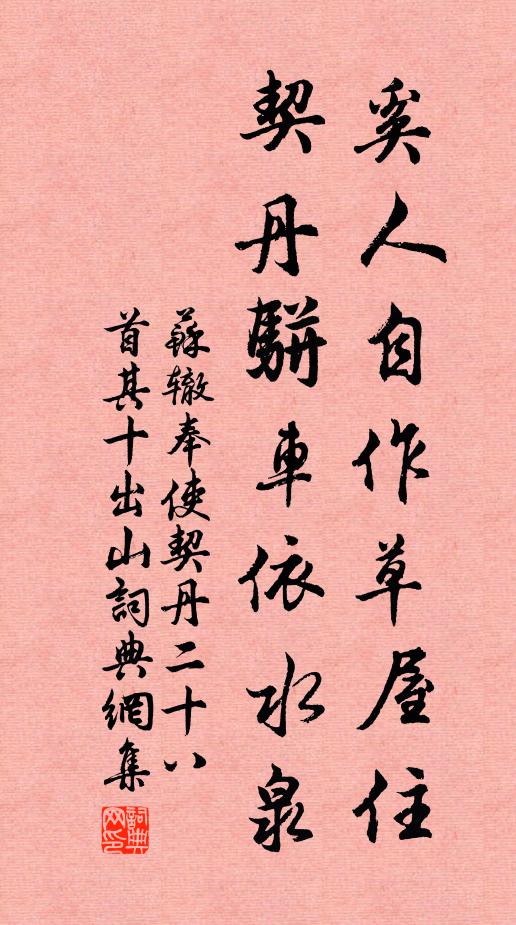 奚人自作草屋住
契丹駢車依水泉
蘇辙奉使契丹二十八
首其十出山詞典網集
詞典网印